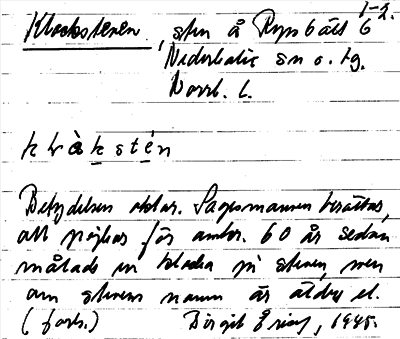 1-2.
Klockstenen, sten å Rynbäck 6
Nederkalix sn o. tg.
Norrb. l.
klåkstén
Betydelsen oklar. Sagesmannen berättar,
att pojkar för omkr. 60 år sedan
målade en klocka på stenen, men
om stenens namn är äldre et.
(forts.) Birgit, 1945.